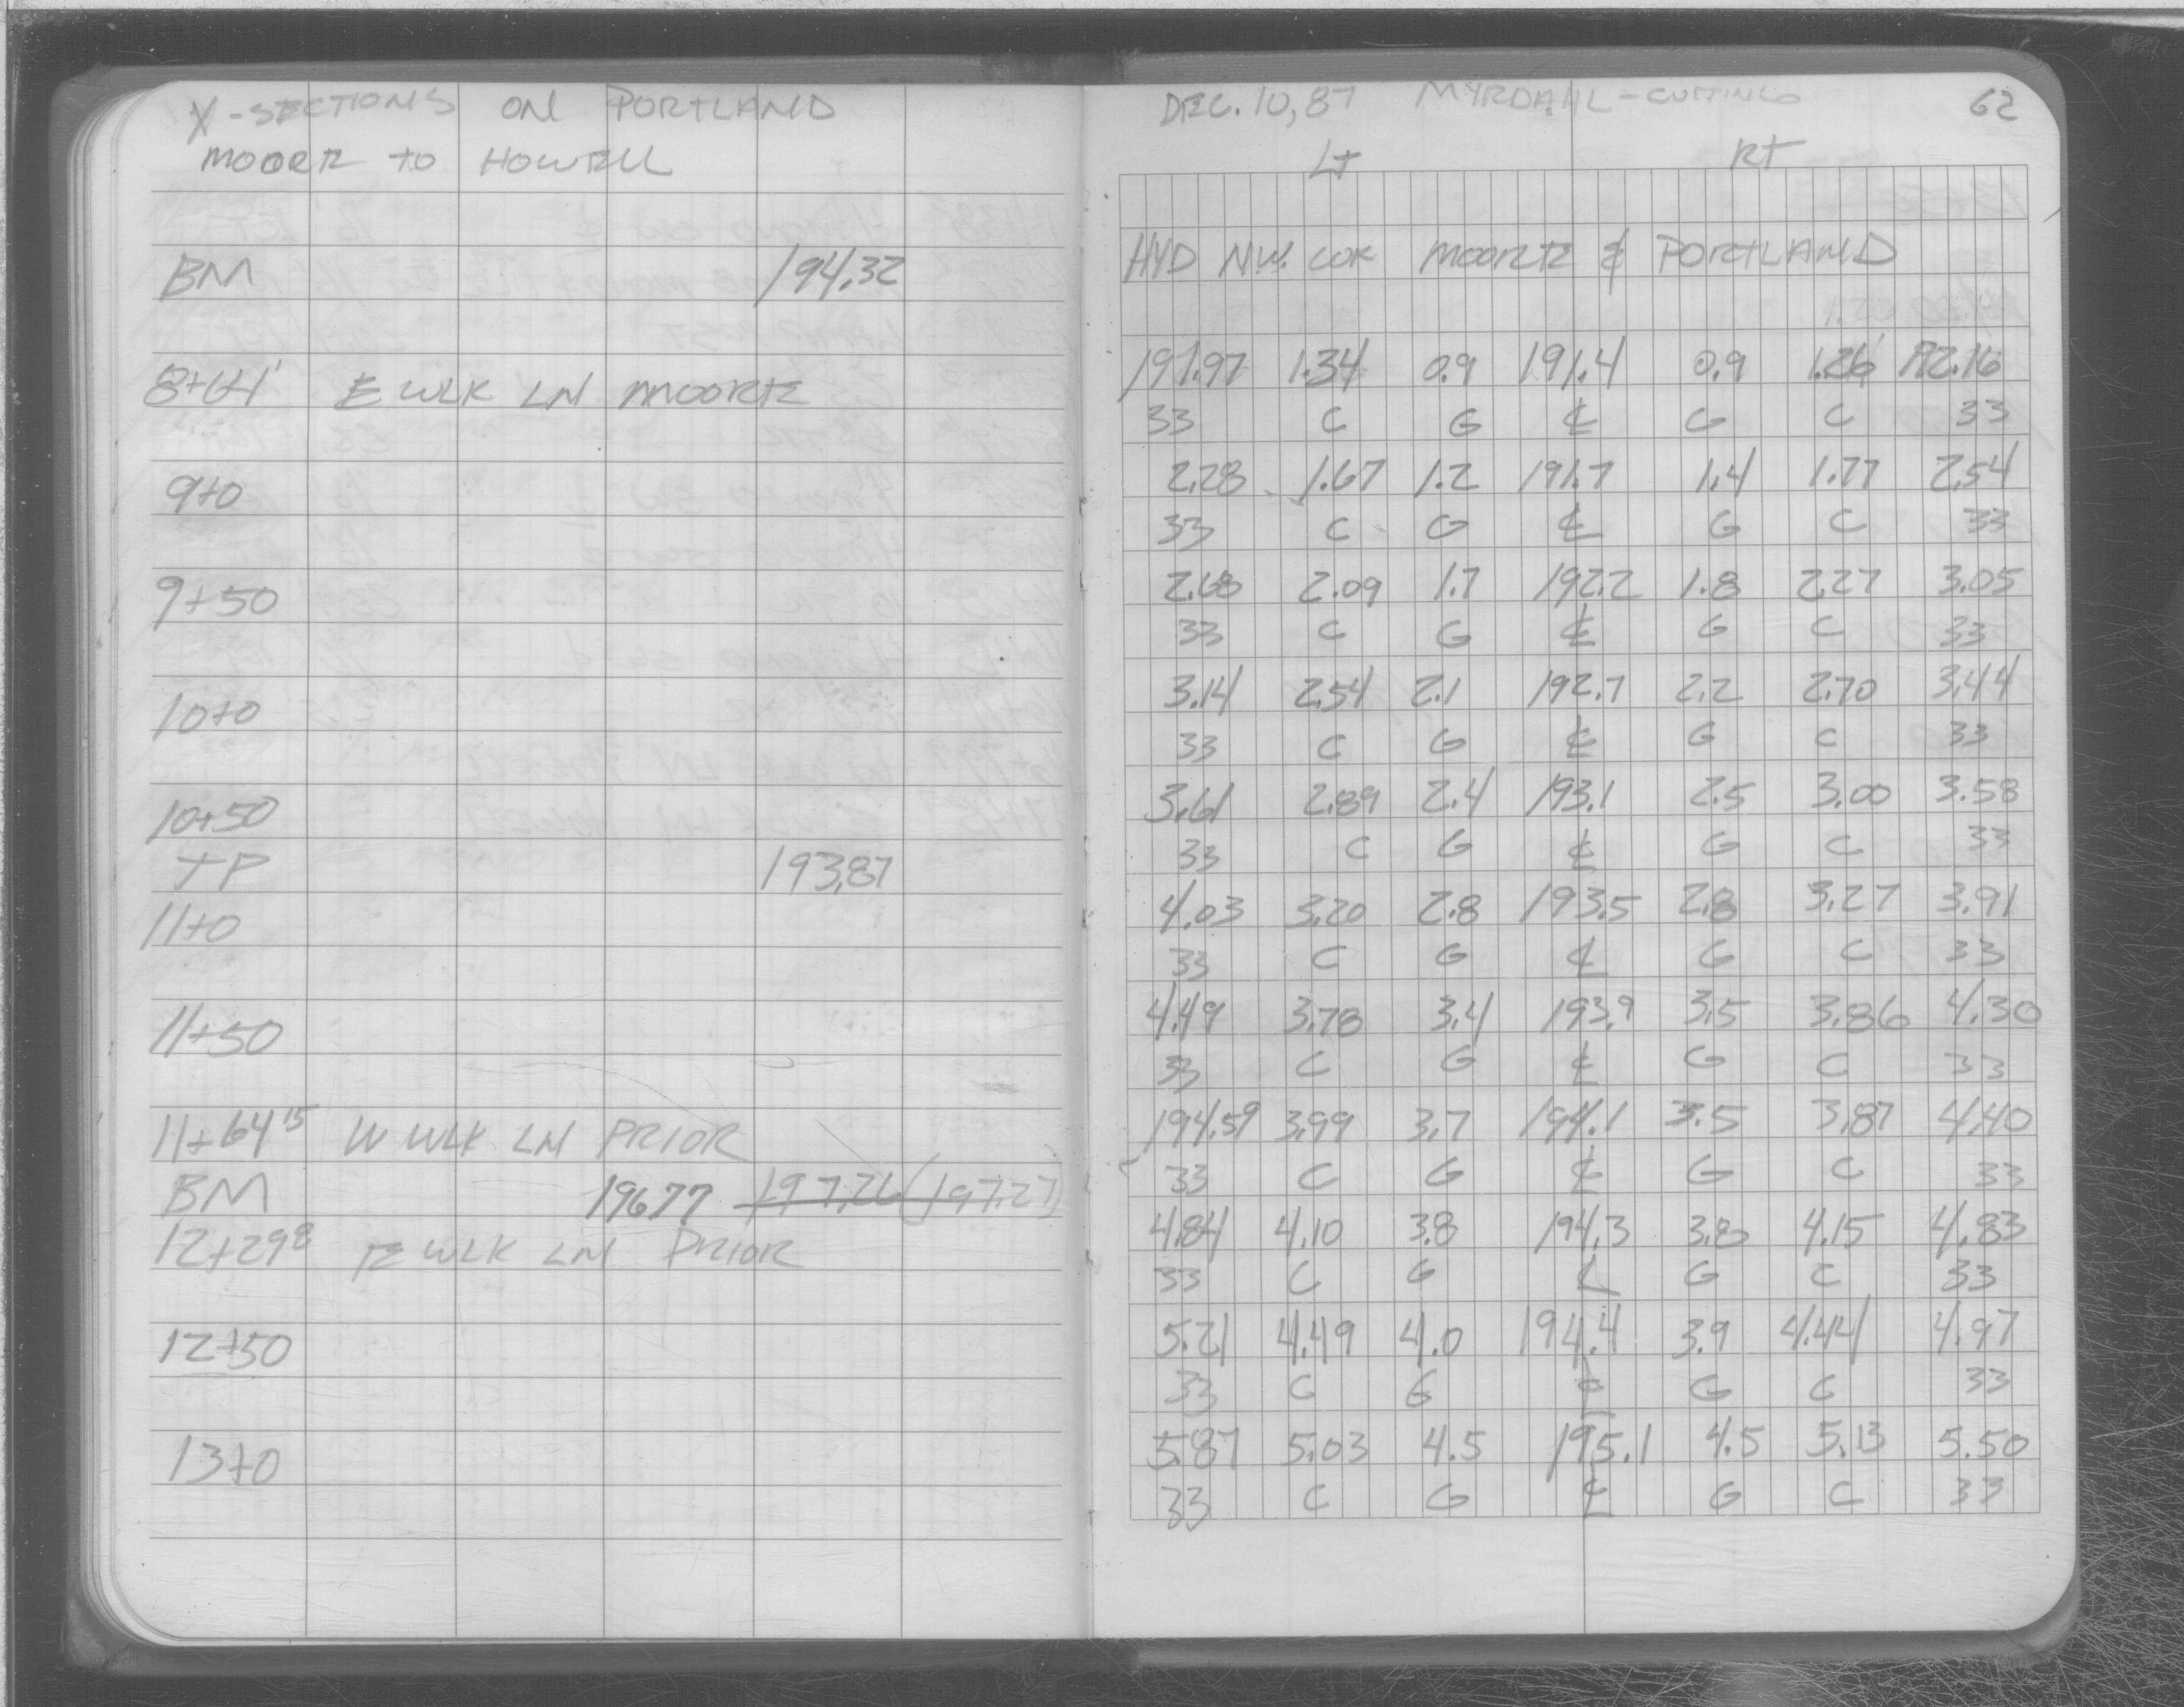 X-SECTIONS ON PORTLAND
MOORE TO HOWELL
BM 194.32
8+64' E WLK LN MOORE
9+0
9+50
10+0
10+50
TP 193.87
11+0
11+50
11+64 15 W WLK LN PRIOR
BM 196.77 197.26 (197.27)
12+29 8 E WLK LN PRIOR
12+50
13+0
DEC. 10, 87 MYRDAHL - CUTTING 62
LT RT
HYD N.W. COR MOORE & PORTLAND
191.97 1.34 0.9 191.4 0.9 1.26 192.16
33 C G ℄ G C 33
2.28 1.67 1.2 191.7 1.4 1.77 2.54
33 C G ℄ G C 33
2.68 2.09 1.7 192.2 1.8 2.27 3.05
33 C G ℄ G C 33
3.14 2.54 2.1 192.7 2.2 2.70 3.44
33 C G ℄ G C 33
3.61 2.89 2.4 193.1 2.5 3.00 3.58
33 C G ℄ G C 33
4.03 3.20 2.8 193.5 2.8 3.27 3.91
33 C G ℄ G C 33
4.49 3.78 3.4 193.9 3.5 3.86 4.30
33 C G ℄ G C 33
194.59 3.99 3.7 194.1 3.5 3.87 4.40
33 C G ℄ G C 33
4.84 4.10 3.8 194.3 3.8 4.15 4.83
33 C G ℄ G C 33
5.21 4.49 4.0 194.4 3.9 4.44 4.97
33 C G ℄ G C 33
5.87 5.03 4.5 195.1 4.5 5.13 5.50
33 C G ℄ G C 33